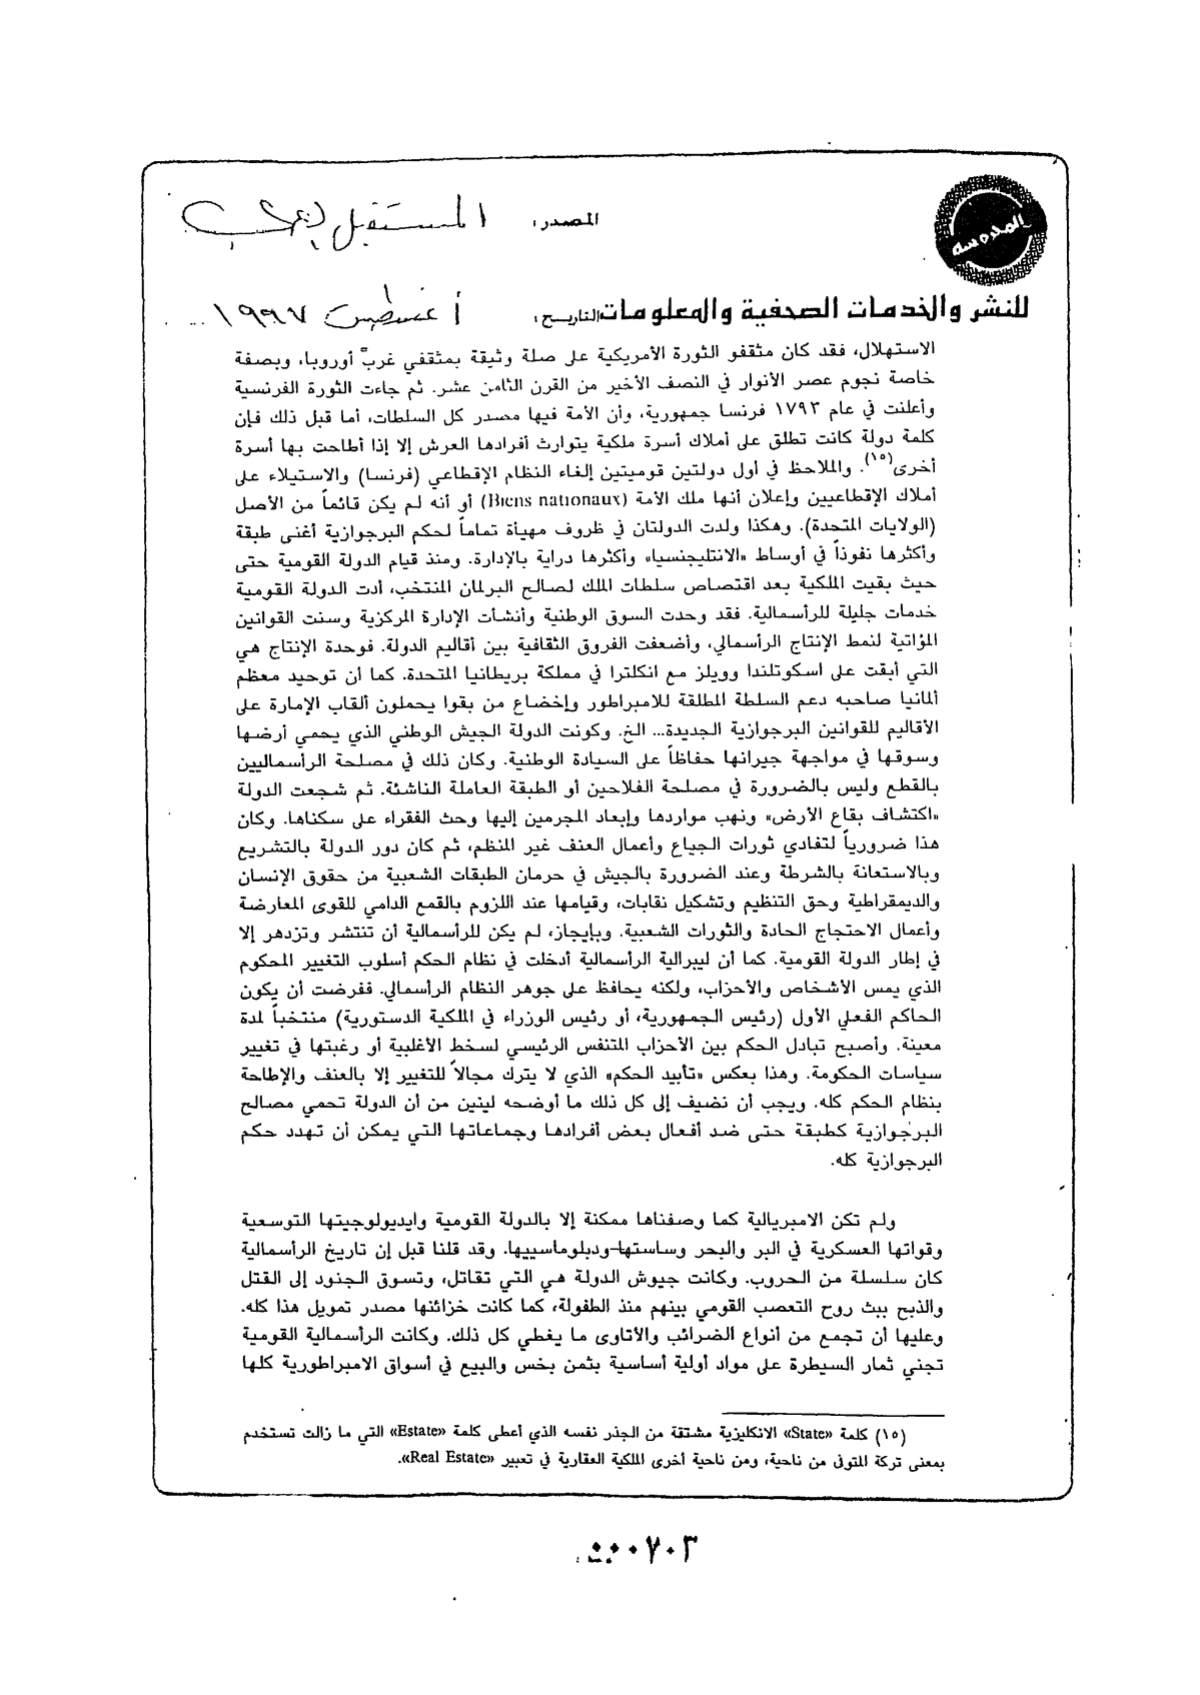 المصدر: المستقبل العربي
المدوسة
للنشر والخدمات الصحفية والمعلومات التاريخ: أغسطس ١٩٩٧
الاستهلال، فقد كان مثقفو الثورة الأمريكية على صلة وثيقة بمثقفي غرب أوروبا، وبصفة
خاصة نجوم عصر الأنوار في النصف الأخير من القرن الثامن عشر. ثم جاءت الثورة الفرنسية
وأعلنت في عام ١٧٩٣ فرنسا جمهورية، وأن الأمة فيها مصدر كل السلطات، أما قبل ذلك فإن
كلمة دولة كانت تطلق على أملاك أسرة ملكية يتوارث أفرادها العرش إلا إذا أطاحت بها أسرة
أخرى(١٥). والملاحظ في أول دولتين قوميتين إلغاء النظام الإقطاعي (فرنسا) والاستيلاء على
أملاك الإقطاعيين وإعلان أنها ملك الأمة (Biens nationaux) أو أنه لم يكن قائماً من الأصل
(الولايات المتحدة). وهكذا ولدت الدولتان في ظروف مهيأة تماماً لحكم البرجوازية أغنى طبقة
وأكثرها نفوذاً في أوساط «الانتليجنسيا» وأكثرها دراية بالإدارة. ومنذ قيام الدولة القومية حتى
حيث بقيت الملكية بعد اقتصاص سلطات الملك لصالح البرلمان المنتخب، أدت الدولة القومية
خدمات جليلة للرأسمالية. فقد وحدت السوق الوطنية وأنشأت الإدارة المركزية وسنت القوانين
المؤاتية لنمط الإنتاج الرأسمالي، وأضعفت الفروق الثقافية بين أقاليم الدولة. فوحدة الإنتاج هي
التي أبقت على اسكوتلندا وويلز مع انكلترا في مملكة بريطانيا المتحدة. كما أن توحيد معظم
ألمانيا صاحبه دعم السلطة المطلقة للامبراطور وإخضاع من بقوا يحملون ألقاب الإمارة على
الأقاليم للقوانين البرجوازية الجديدة... الخ. وكونت الدولة الجيش الوطني الذي يحمي أرضها
وسوقها في مواجهة جيرانها حفاظاً على السيادة الوطنية. وكان ذلك في مصلحة الرأسماليين
بالقطع وليس بالضرورة في مصلحة الفلاحين أو الطبقة العاملة الناشئة. ثم شجعت الدولة
«اكتشاف بقاع الأرض» ونهب مواردها وإبعاد المجرمين إليها وحث الفقراء على سكناها. وكان
هذا ضرورياً لتفادي ثورات الجياع وأعمال العنف غير المنظم، ثم كان دور الدولة بالتشريع
وبالاستعانة بالشرطة وعند الضرورة بالجيش في حرمان الطبقات الشعبية من حقوق الإنسان
والديمقراطية وحق التنظيم وتشكيل نقابات، وقيامها عند اللزوم بالقمع الدامي للقوى المعارضة
وأعمال الاحتجاج الحادة والثورات الشعبية. وبإيجاز، لم يكن للرأسمالية أن تنتشر وتزدهر إلا
في إطار الدولة القومية. كما أن ليبرالية الرأسمالية أدخلت في نظام الحكم أسلوب التغيير المحكوم
الذي يمس الأشخاص والأحزاب، ولكنه يحافظ على جوهر النظام الرأسمالي. ففرضت أن يكون
الحاكم الفعلي الأول (رئيس الجمهورية، أو رئيس الوزراء في الملكية الدستورية) منتخباً لمدة
معينة. وأصبح تبادل الحكم بين الأحزاب المتنفس الرئيسي لسخط الأغلبية أو رغبتها في تغيير
سياسات الحكومة. وهذا بعكس «تأبيد الحكم» الذي لا يترك مجالاً للتغيير إلا بالعنف والإطاحة
بنظام الحكم كله. ويجب أن نضيف إلى كل ذلك ما أوضحه لينين من أن الدولة تحمي مصالح
البرجوازية كطبقة حتى ضد أفعال بعض أفرادها وجماعاتها التي يمكن أن تهدد حكم
البرجوازية كله.
ولم تكن الامبريالية كما وصفناها ممكنة إلا بالدولة القومية وايديولوجيتها التوسعية
وقواتها العسكرية في البر والبحر وساستها ودبلوماسييها. وقد قلنا قبل إن تاريخ الرأسمالية
كان سلسلة من الحروب. وكانت جيوش الدولة هي التي تقاتل، وتسوق الجنود إلى القتل
والذبح ببث روح التعصب القومي بينهم منذ الطفولة، كما كانت خزائنها مصدر تمويل هذا كله.
وعليها أن تجمع من أنواع الضرائب والأتاوى ما يغطي كل ذلك. وكانت الرأسمالية القومية
تجني ثمار السيطرة على مواد أولية أساسية بثمن بخس والبيع في أسواق الامبراطورية كلها
(١٥) كلمة «State» الانكليزية مشتقة من الجذر نفسه الذي أعطى كلمة «Estate» التي ما زالت تستخدم
بمعنى تركة المتوفى من ناحية، ومن ناحية أخرى الملكية العقارية في تعبير «Real Estate».